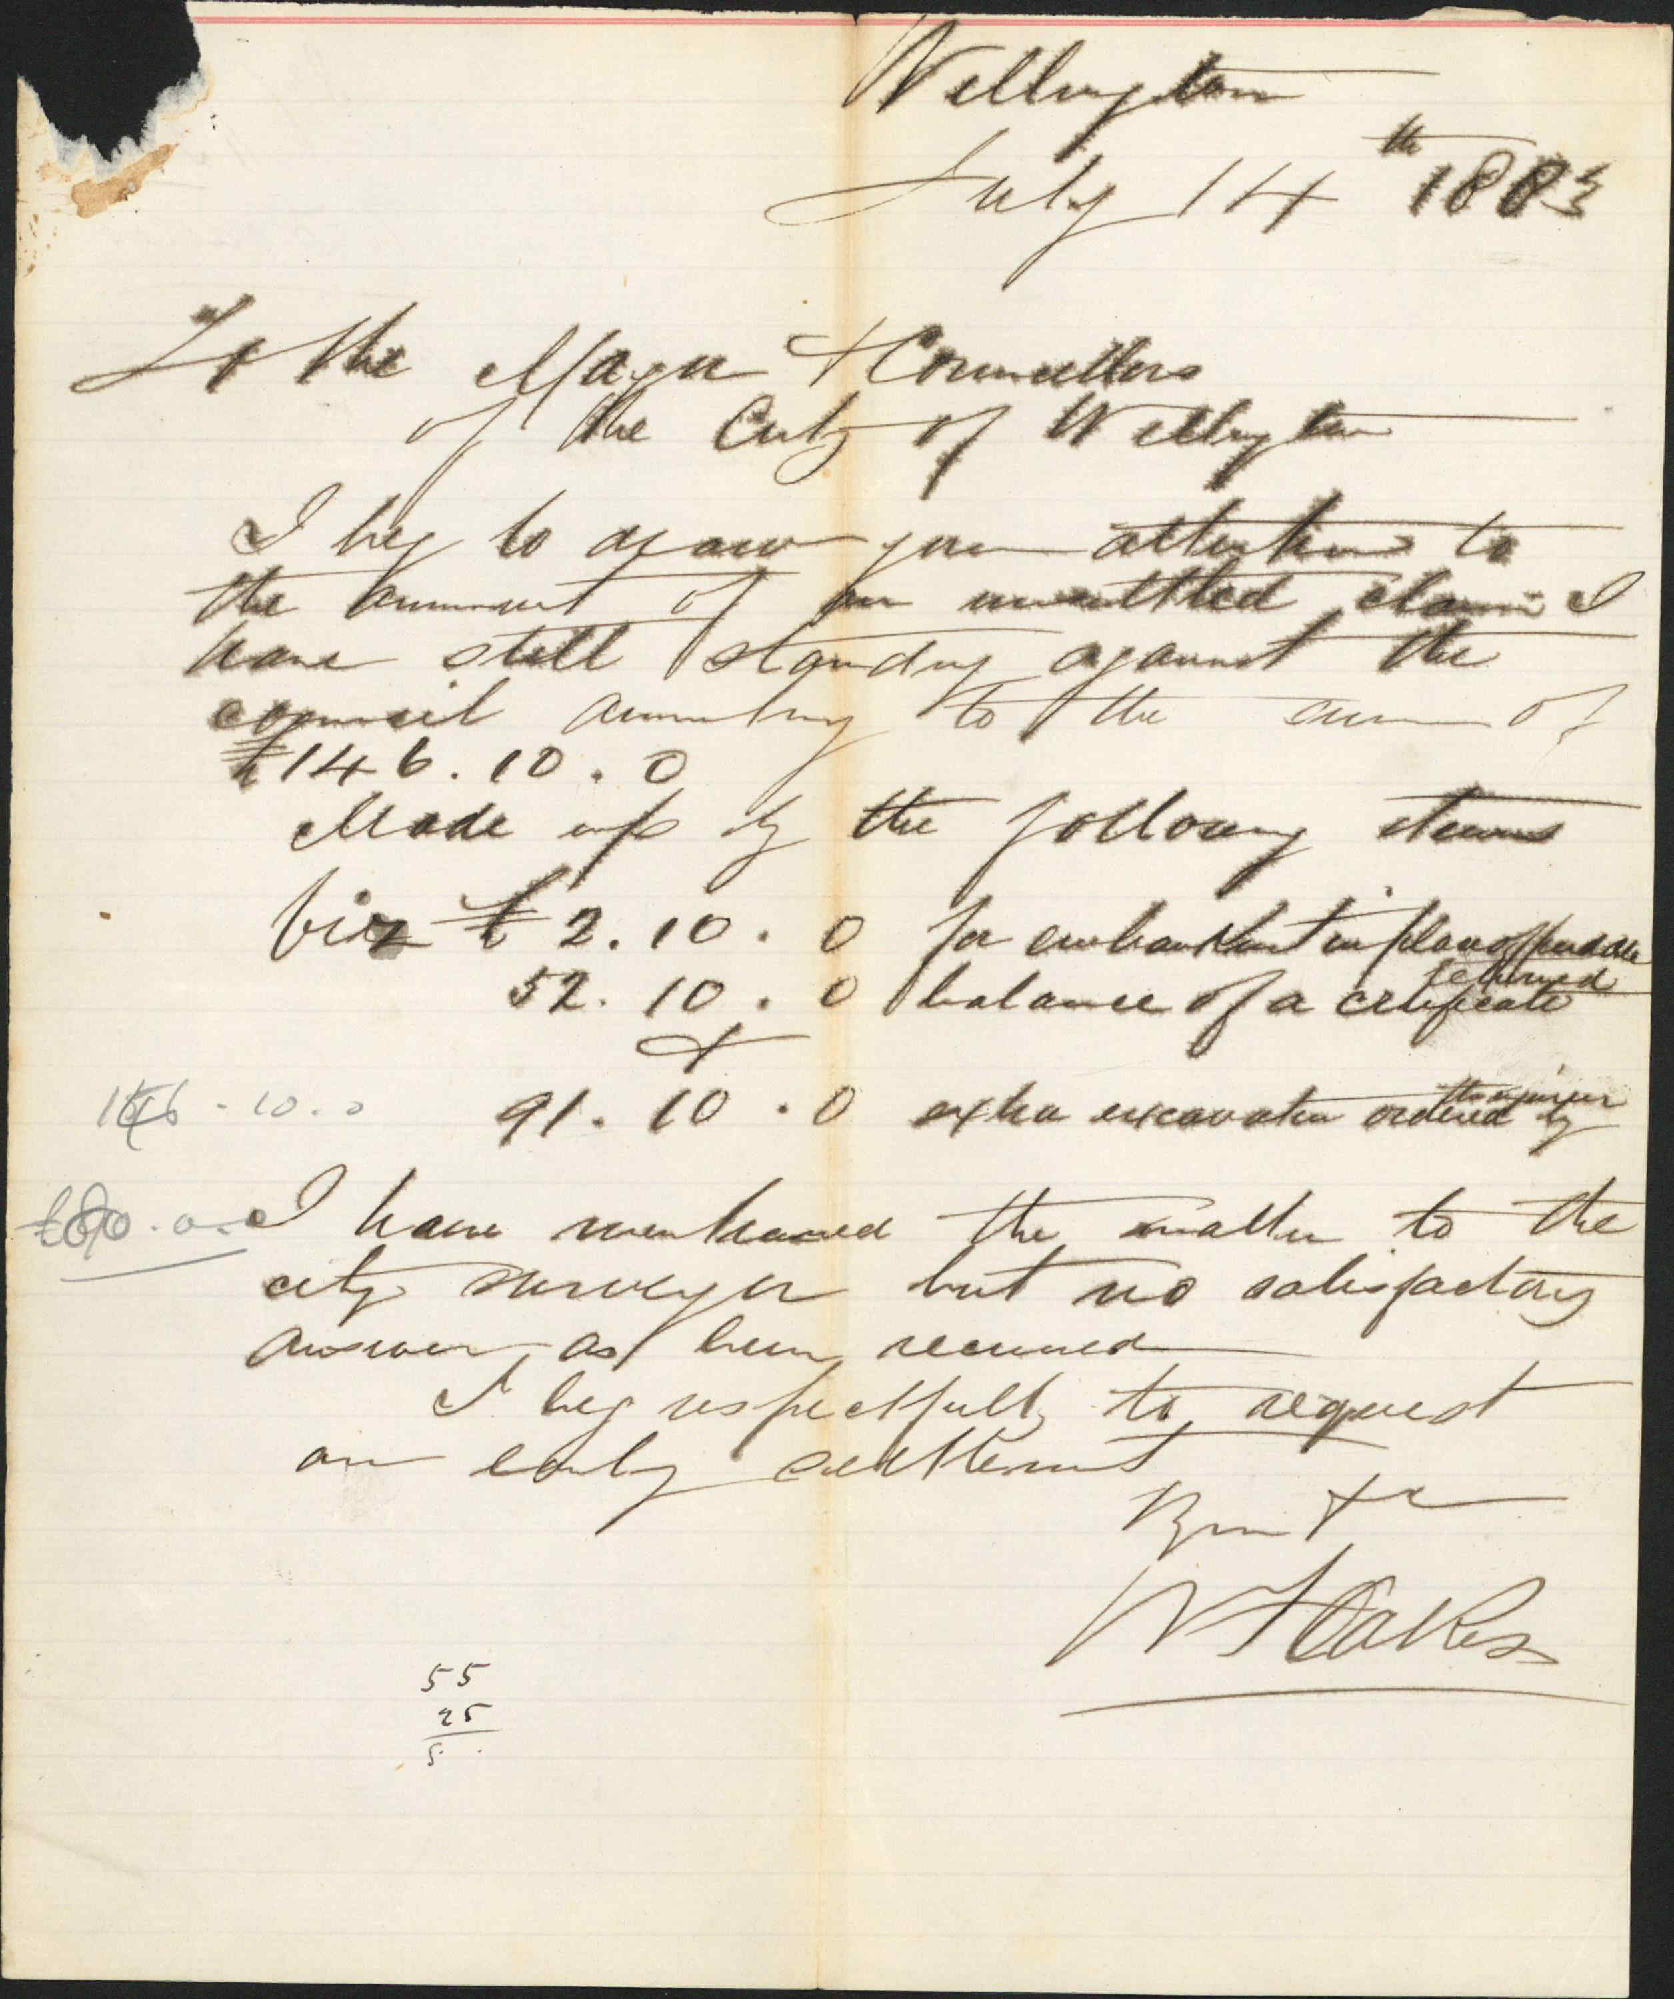 Wellington
July 14th 1883
To the Mayor & Councillors
of the City of Wellington
I beg to draw your attention to
the amount of an unsettled claim I
have still standing against the
council amounting to the sum of
£146.10.0
Made up by the following items
Viz £2.10.0 for embankment in place of puddle
52.10.0 balance of a certificate
&
91.10.0 extra excavation ordered by the engineer
146.10.0
I have mentioned the matter to the
city surveyor but no satisfactory
answer as been received
I beg respectfully to request
an early settlement
Yours &c
W Oakes
55
25
5